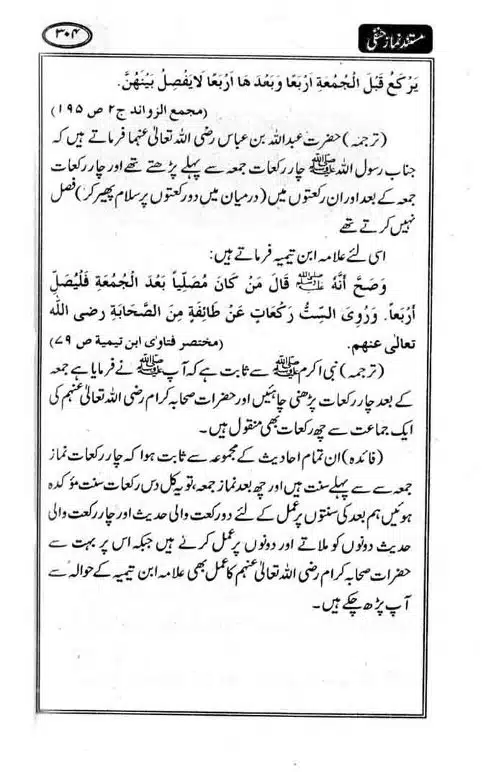 مستند نماز حنفی
۳۰۴
يَرْكَعُ قَبْلَ الْجُمُعَةِ اَرْبَعًا وَبَعْدَ هَا اَرْبَعًا لَايَفْصِلُ بَيْنَهُنَّ.
(مجمع الزوائد ج۲ ص ۱۹۵)
(ترجمہ) حضرت عبداللہ بن عباس رضی اللہ تعالیٰ عنہما فرماتے ہیں کہ
جناب رسول اللہ ﷺ چار رکعات جمعہ سے پہلے پڑھتے تھے اور چار رکعات
جمعہ کے بعد اور ان رکعتوں میں (درمیان میں دو رکعتوں پر سلام پھیر کر) فصل
نہیں کرتے تھے
اسی لئے علامہ ابن تیمیہ فرماتے ہیں:
وَصَحَّ اَنَّهُ ﷺ قَالَ مَنْ كَانَ مُصَلِّياً بَعْدَ الْجُمُعَةِ فَلْيُصَلِّ
اَرْبَعاً. وَرُوِىَ السِّتُّ رَكْعَاتٍ عَنْ طَائِفَةٍ مِنَ الصَّحَابَةِ رضى اللّٰه
تعالى عنهم. (مختصر فتاوى ابن تيمية ص ۷۹)
(ترجمہ) نبی اکرم ﷺ سے ثابت ہے کہ آپ ﷺ نے فرمایا ہے جمعہ
کے بعد چار رکعات پڑھنی چاہئیں اور حضرات صحابہ کرام رضی اللہ تعالیٰ عنہم کی
ایک جماعت سے چھ رکعات بھی منقول ہیں۔
(فائدہ) ان تمام احادیث کے مجموعہ سے ثابت ہوا کہ چار رکعات نماز
جمعہ سے سے پہلے سنت ہیں اور چھ بعد نماز جمعہ، تو یہ کل دس رکعات سنت مؤکدہ
ہوئیں ہم بعد کی سنتوں پر عمل کے لئے دو رکعت والی حدیث اور چار رکعت والی
حدیث دونوں کو ملاتے اور دونوں پر عمل کرتے ہیں جبکہ اس پر بہت سے
حضرات صحابہ کرام رضی اللہ تعالیٰ عنہم کا عمل بھی علامہ ابن تیمیہ کے حوالہ سے
آپ پڑھ چکے ہیں۔